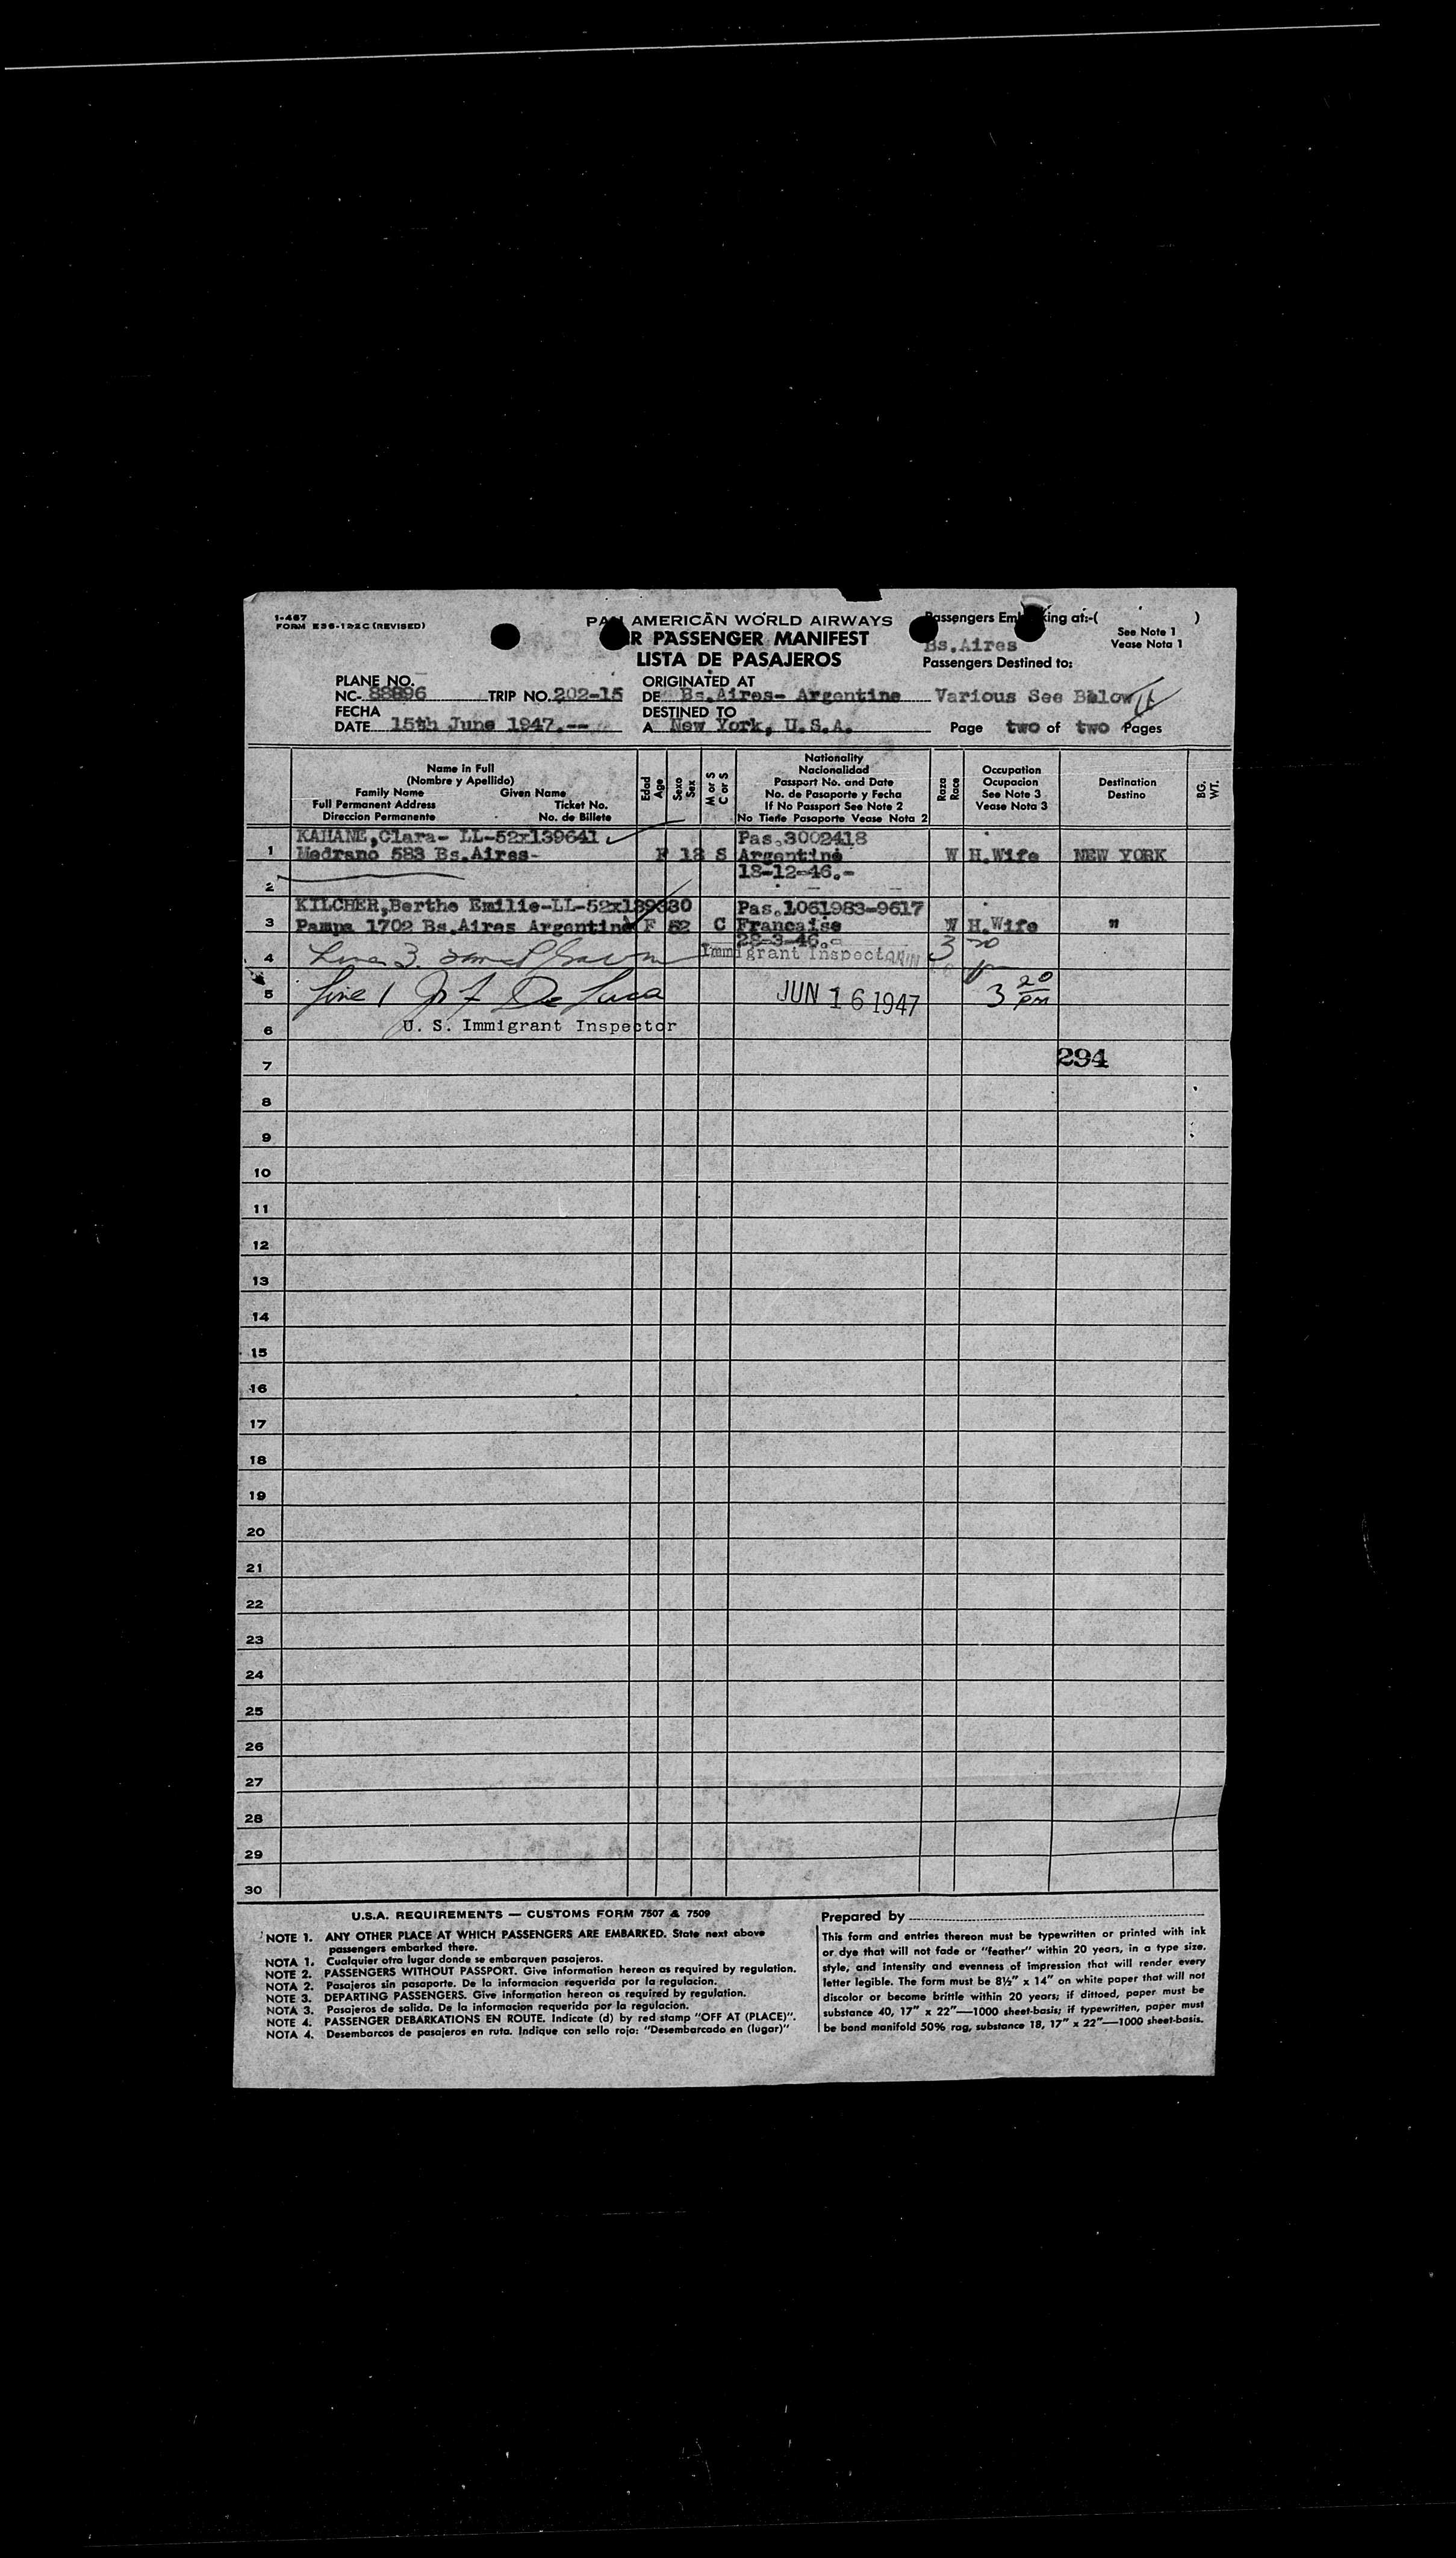 1-467
FORM E36-122C (REVISED)
PAN AMERICAN WORLD AIRWAYS
R PASSENGER MANIFEST
LISTA DE PASAJEROS
Passengers Embarking at:-( )
Bs.Aires
See Note 1
Vease Nota 1
Passengers Destined to:
PLANE NO.
NC- 88896 TRIP NO. 202-15
ORIGINATED AT
DE Bs.Aires- Argentine
Various See Below
FECHA
DATE 15th June 1947.--
DESTINED TO
A New York, U.S.A.
Page two of two Pages
Name in Full
(Nombre y Apellido)
Family Name Given Name
Full Permanent Address Ticket No.
Direccion Permanente No. de Billete
Edad
Age
Sexo
Sex
M or S
C or S
Nationality
Nacionalidad
Passport No. and Date
No. de Pasaporte y Fecha
If No Passport See Note 2
No Tiene Pasaporte Vease Nota 2
Raza
Race
Occupation
Ocupacion
See Note 3
Vease Nota 3
Destination
Destino
BG.
WT.
KAHANE,Clara- LL-52x139641 Pas.3002418
1 Medrano 583 Bs.Aires- F 18 S Argentine W H.Wife NEW YORK
18-12-46.-
2
KILCHER,Berthe Emilie-LL-52x139330 Pas.1061983-9617
3 Pampa 1702 Bs.Aires Argentine F 52 C Francaise W H.Wife "
28-3-46.-
4 Line 3. Immigrant Inspector 3 20
5 Line 1 De Luca JUN 16 1947 3 20 PM
6 U. S. Immigrant Inspector
7 294
8
9
10
11
12
13
14
15
16
17
18
19
20
21
22
23
24
25
26
27
28
29
30
U.S.A. REQUIREMENTS — CUSTOMS FORM 7507 & 7509
NOTE 1. ANY OTHER PLACE AT WHICH PASSENGERS ARE EMBARKED. State next above
passengers embarked there.
NOTA 1. Cualquier otro lugar donde se embarquen pasajeros.
NOTE 2. PASSENGERS WITHOUT PASSPORT. Give information hereon as required by regulation.
NOTA 2. Pasajeros sin pasaporte. De la informacion requerida por la regulacion.
NOTE 3. DEPARTING PASSENGERS. Give information hereon as required by regulation.
NOTA 3. Pasajeros de salida. De la informacion requerida por la regulacion.
NOTE 4. PASSENGER DEBARKATIONS EN ROUTE. Indicate (d) by red stamp "OFF AT (PLACE)".
NOTA 4. Desembarcos de pasajeros en ruta. Indique con sello rojo: "Desembarcado en (lugar)"
Prepared by
This form and entries thereon must be typewritten or printed with ink
or dye that will not fade or "feather" within 20 years, in a type size,
style, and intensity and evenness of impression that will render every
letter legible. The form must be 8½" x 14" on white paper that will not
discolor or become brittle within 20 years; if dittoed, paper must be
substance 40, 17" x 22"—1000 sheet-basis; if typewritten, paper must
be bond manifold 50% rag, substance 18, 17" x 22"—1000 sheet-basis.